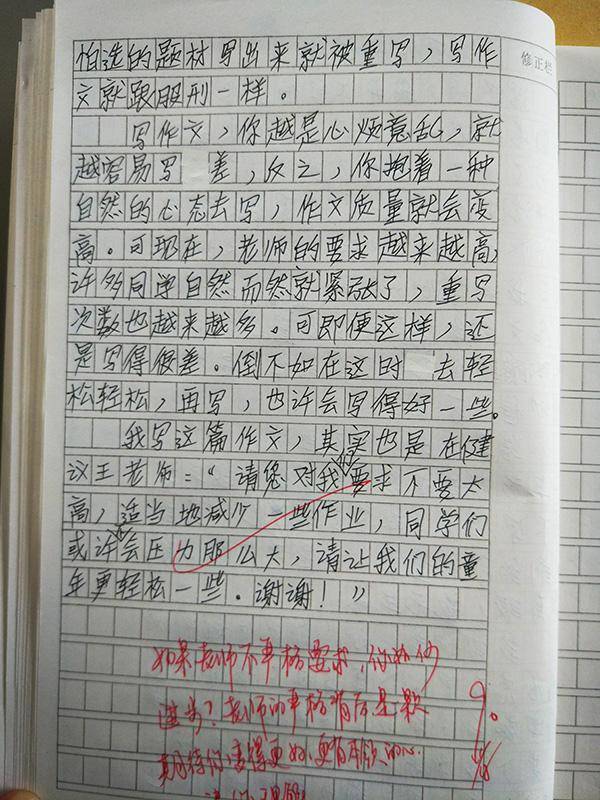 修正栏
怕选的题材写出来就被重写，写作
文就跟服刑一样。
写作文，你越是心烦意乱，就
越容易写 差，反之，你抱着一种
自然的心态去写，作文质量就会变
高。可现在，老师的要求越来越高，
许多同学自然而然就紧张了，重写
次数也越来越多。可即便这样，还
是写得很差。倒不如在这时 去轻
松轻松，再写，也许会写得好一些。
我写这篇作文，其实也是在健
议王老师：“请您对我要求不要太
高，适当地减少一些作业，同学们
或许会压力那么大，请让我们的童
年更轻松一些。谢谢！”
如果老师不严格要求，你如何
进步？老师的严格背后是一颗
期待你变得更好、更有本领的心.